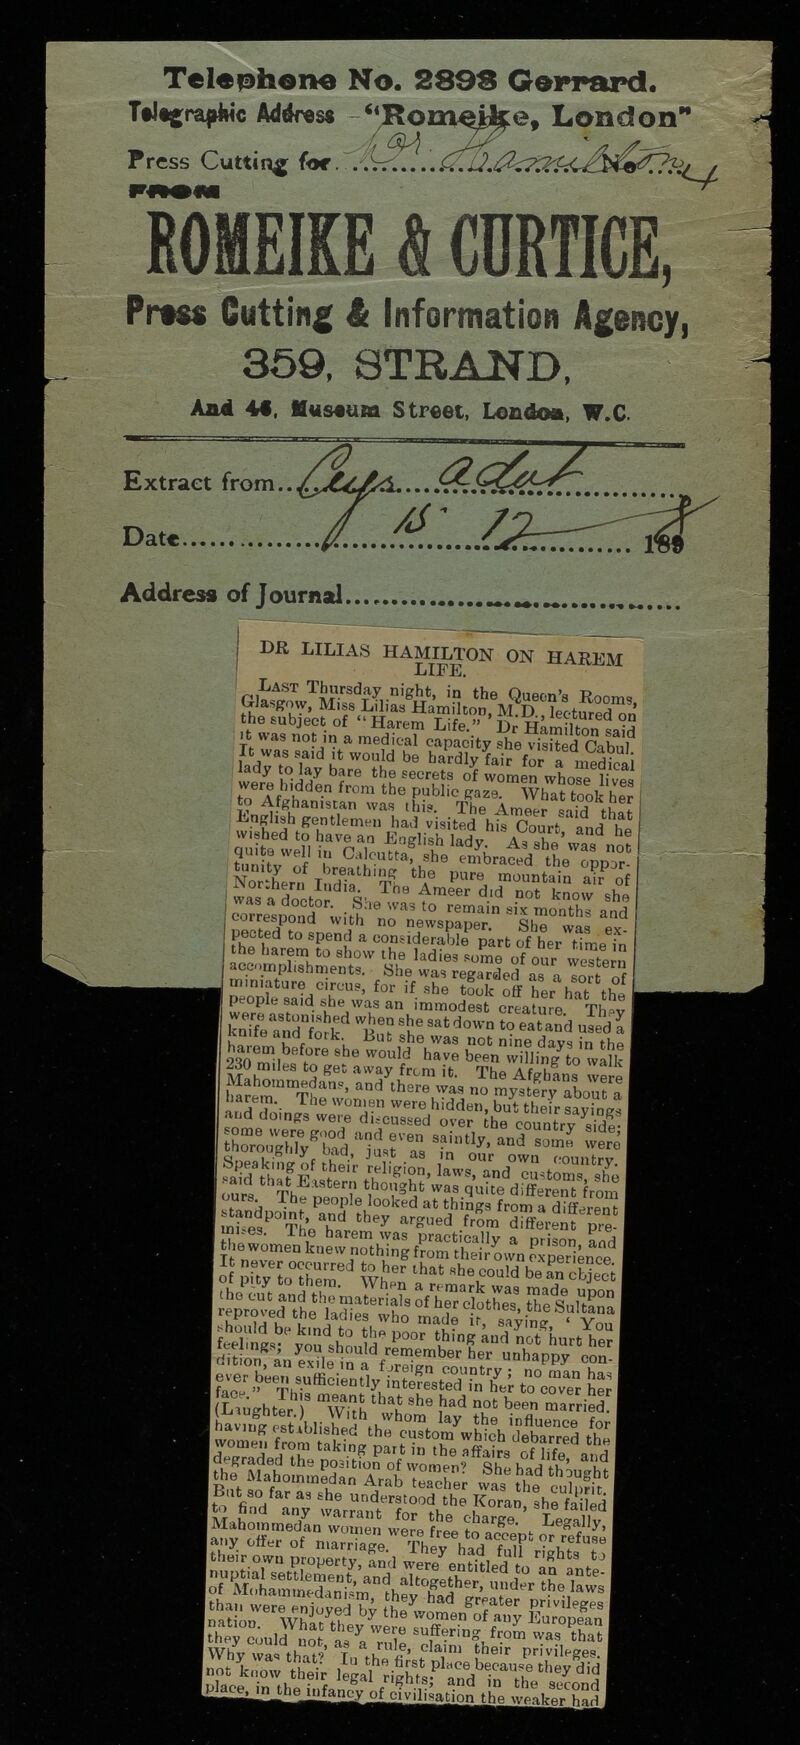 Telephone No. 2898 Gerrard.
Telegraphic Address - "Romeike, London"
Press Cutting for Dr. Hamilton No
FROM
ROMEIKE & CURTICE,
Press Cutting & Information Agency,
359, STRAND,
And 46, Museum Street, London, W.C.
Extract from
Date 15 12 1898
Address of Journal
DR LILIAS HAMILTON ON HAREM
LIFE.
LAST Thursday night, in the Queen's Rooms,
Glasgow, Miss Lilias Hamilton, M.D., lectured on
the subject of "Harem Life." Dr Hamilton said
it was not in a medical capacity she visited Cabul.
It was said it would be hardly fair for a medical
lady to lay bare the secrets of women whose lives
were hidden from the public gaze. What took her
to Afghanistan was this. The Ameer said that
English gentlemen had visited his Court, and he
wished to have an English lady. As she was not
quite well in Calcutta, she embraced the oppor-
tunity of breathing the pure mountain air of
Northern India. The Ameer did not know she
was a doctor. She was to remain six months and
correspond with no newspaper. She was ex-
pected to spend a considerable part of her time in
the harem to show the ladies some of our western
accomplishments. She was regarded as a sort of
miniature circus, for if she took off her hat the
people said she was an immodest creature. They
were astonished when she sat down to eat and used a
knife and fork. But she was not nine days in the
harem before she would have been willing to walk
230 miles to get away from it. The Afghans were
Mahommedans, and there was no mystery about a
harem. The women were hidden, but their sayings
and doings were discussed over the country side;
some were good and even saintly, and some were
thoroughly bad, just as in our own country.
Speaking of their religion, laws, and customs, she
said that Eastern thought was quite different from
ours. The people looked at things from a different
standpoint, and they argued from different pre-
mises. The harem was practically a prison, and
the women knew nothing from their own experience.
It never occurred to her that she could be an object
of pity to them. When a remark was made upon
the cut and the materials of her clothes, the Sultana
reproved the ladies who made it, saying, ' You
should be kind to the poor thing and not hurt her
feelings; you should remember her unhappy con-
dition, an exile in a foreign country; no man has
ever been sufficiently interested in her to cover her
face." This meant that she had not been married.
(Laughter.) With whom lay the influence for
having established the custom which debarred the
women from taking part in the affairs of life, and
degraded the position of women? She had thought
the Mahommedan Arab teacher was the culprit.
But so far as she understood the Koran, she failed
to find any warrant for the charge. Legally,
Mahommedan women were free to accept or refuse
any offer of marriage. They had full rights to
their own property, and were entitled to an ante-
nuptial settlement, and altogether, under the laws
of Mohammedanism, they had greater privileges
than were enjoyed by the women of any European
nation. What they were suffering from was that
they could not, as a rule, claim their privileges.
Why was that? In the first place because they did
not know their legal rights; and in the second
place, in the infancy of civilisation the weaker had